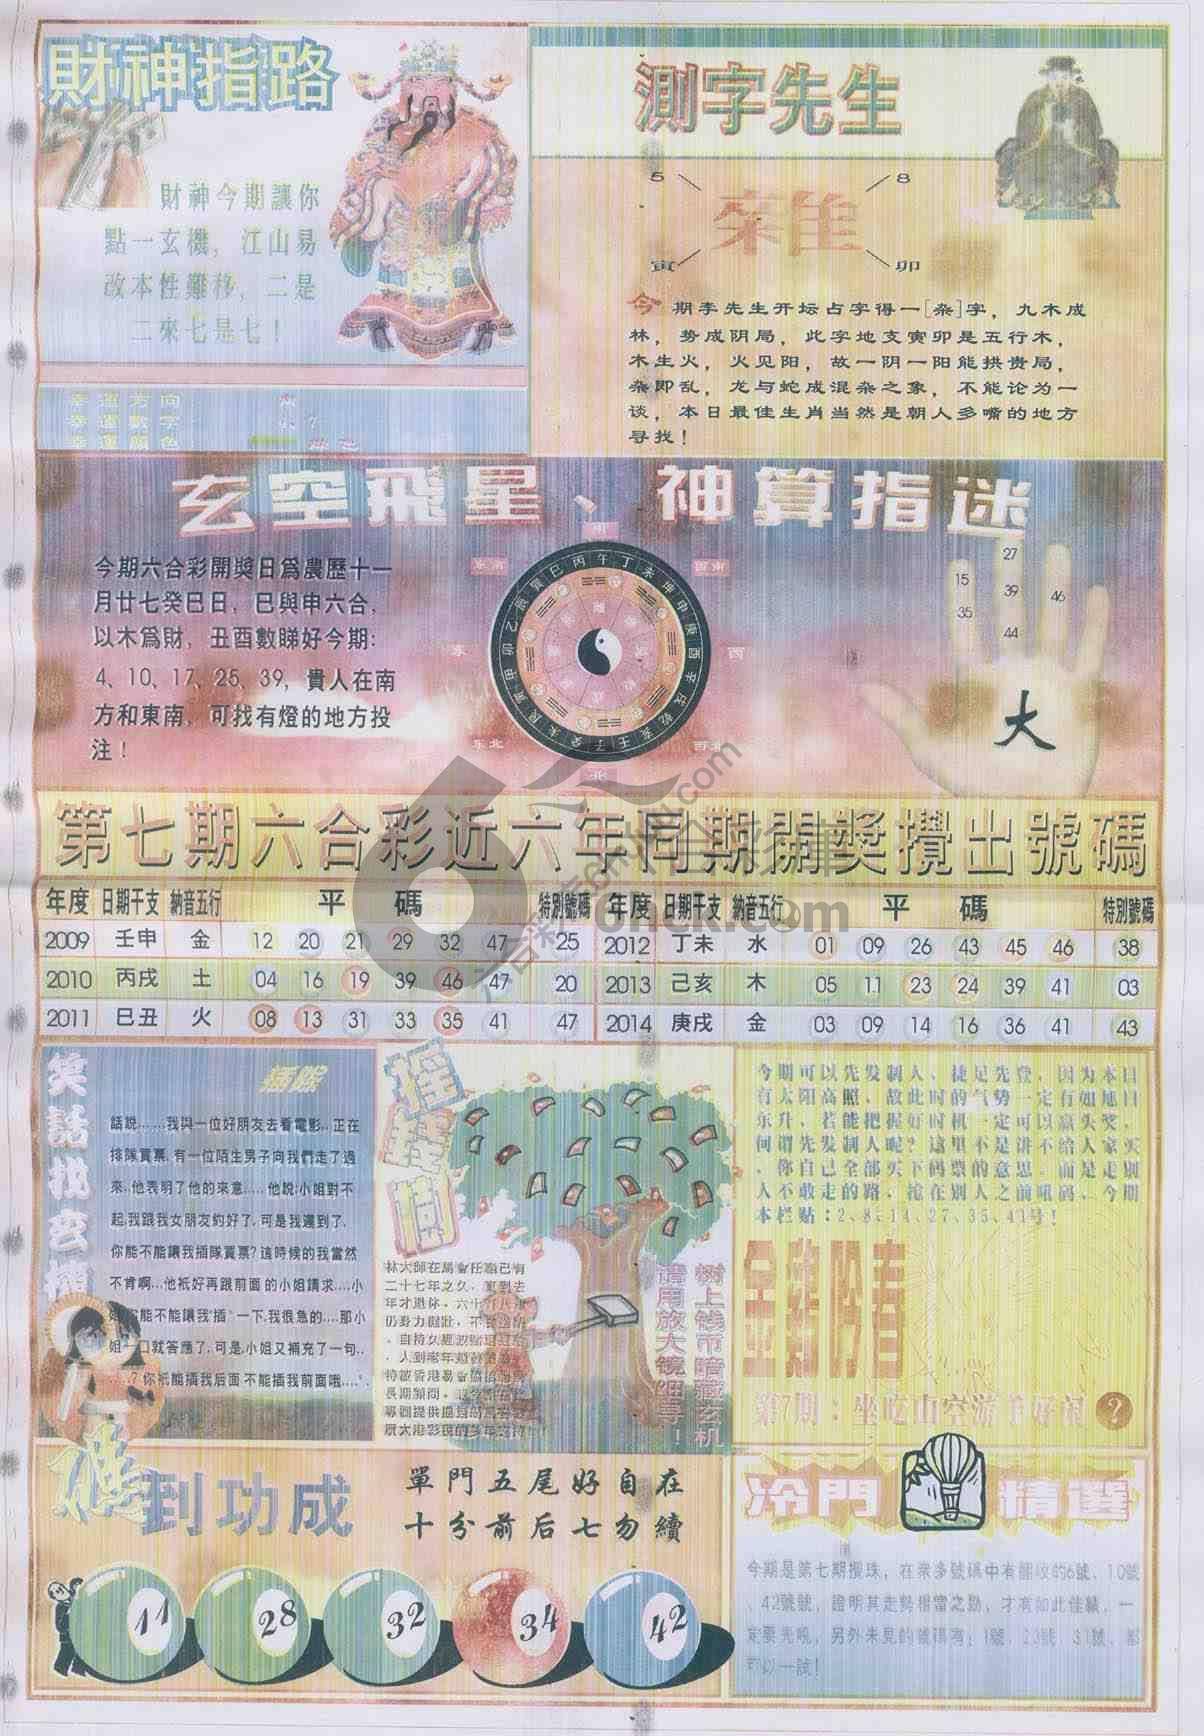 財神指路
財神今期讓你
點一玄機，江山易
改本性難移，二是
二來七是七！
幸運方向
幸運數字
幸運顏色
測字先生
5
8
雜
寅
卯
今期李先生开坛占字得一[杂]字，九木成
林，势成阴局，此字地支寅卯是五行木，
木生火，火见阳，故一阴一阳能拱贵局，
杂即乱，龙与蛇成混杂之象，不能论为一
谈，本日最佳生肖当然是朝人多嘴的地方
寻找！
玄空飛星、神算指迷
今期六合彩開獎日為農歷十一
月廿七癸巳日，巳與申六合，
以木為財，丑酉數睇好今期：
4、10、17、25、39，貴人在南
方和東南，可找有燈的地方投
注！
南
东南
西南
东
西
东北
西北
北
27
15
39
46
35
44
大
第七期六合彩近六年同期開獎攪出號碼
年度 日期干支 納音五行 平碼 特別號碼 年度 日期干支 納音五行 平碼 特別號碼
2009 壬申 金 12 20 21 29 32 47 25 2012 丁未 水 01 09 26 43 45 46 38
2010 丙戌 土 04 16 19 39 46 47 20 2013 己亥 木 05 11 23 24 39 41 03
2011 巳丑 火 08 13 31 33 35 41 47 2014 庚戌 金 03 09 14 16 36 41 43
笑話找玄機
插隊
話說......我與一位好朋友去看電影..正在
排隊買票,有一位陌生男子向我們走了過
來,他表明了他的來意.....他說:小姐對不
起,我跟我女朋友約好了,可是我遲到了,
你能不能讓我插隊買票?這時候的我當然
不肯啊...他衹好再跟前面的小姐請求....小
姐,你能不能讓我"插"一下,我很急的....那小
姐一口就答應了,可是,小姐又補充了一句...
....?你衹能插我后面不能插我前面哦....
搖錢樹
林大師在馬會任職已有
二十七年之久，直到去
树上钱币暗藏玄机
请用放大镜细寻！
今期可以先发制人、捷足先登，因为本日
有太阳高照，故此时的气势一定有如旭日
东升，若能把握好时机一定可以赢头奖，
何谓先发制人呢？这里不是讲不给人家买
，你自己全部买下码票的意思，而是走别
人不敢走的路，抢在别人之前吼码，今期
本栏贴：2、8、14、27、35、41号！
金雞鬧春
第7期：坐吃山空游手好闲 ?
碼到功成
單門五尾好自在
十分前后七勿續
11
28
32
34
42
冷門精選
今期是第七期攪珠，在眾多號碼中有儲收的6號、10號
、42號號，證明其走勢相當之勁，才有如此佳績，一
定要先吼，另外未見的號碼有：1號、23號、31號、都
可以一試！
六合彩库
6hck.com